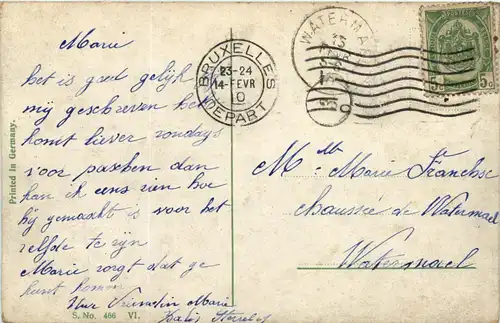 Marie
het is goed gelijk
mij geschreven het
komt liever zondags
voor paschen dan
kan ik eens zien hoe
hij gemaakt is voor het
zelfde te zijn
Marie zorgt dat ge
kunt komen
Uwe Marie
Printed in Germany.
S. No. 466 VI.
BRUXELLES
23-24
14-FEVR
10
DEPART
WATERMA
13
5c 5c
Mlle Marie
chaussée de Watermael
Watermael